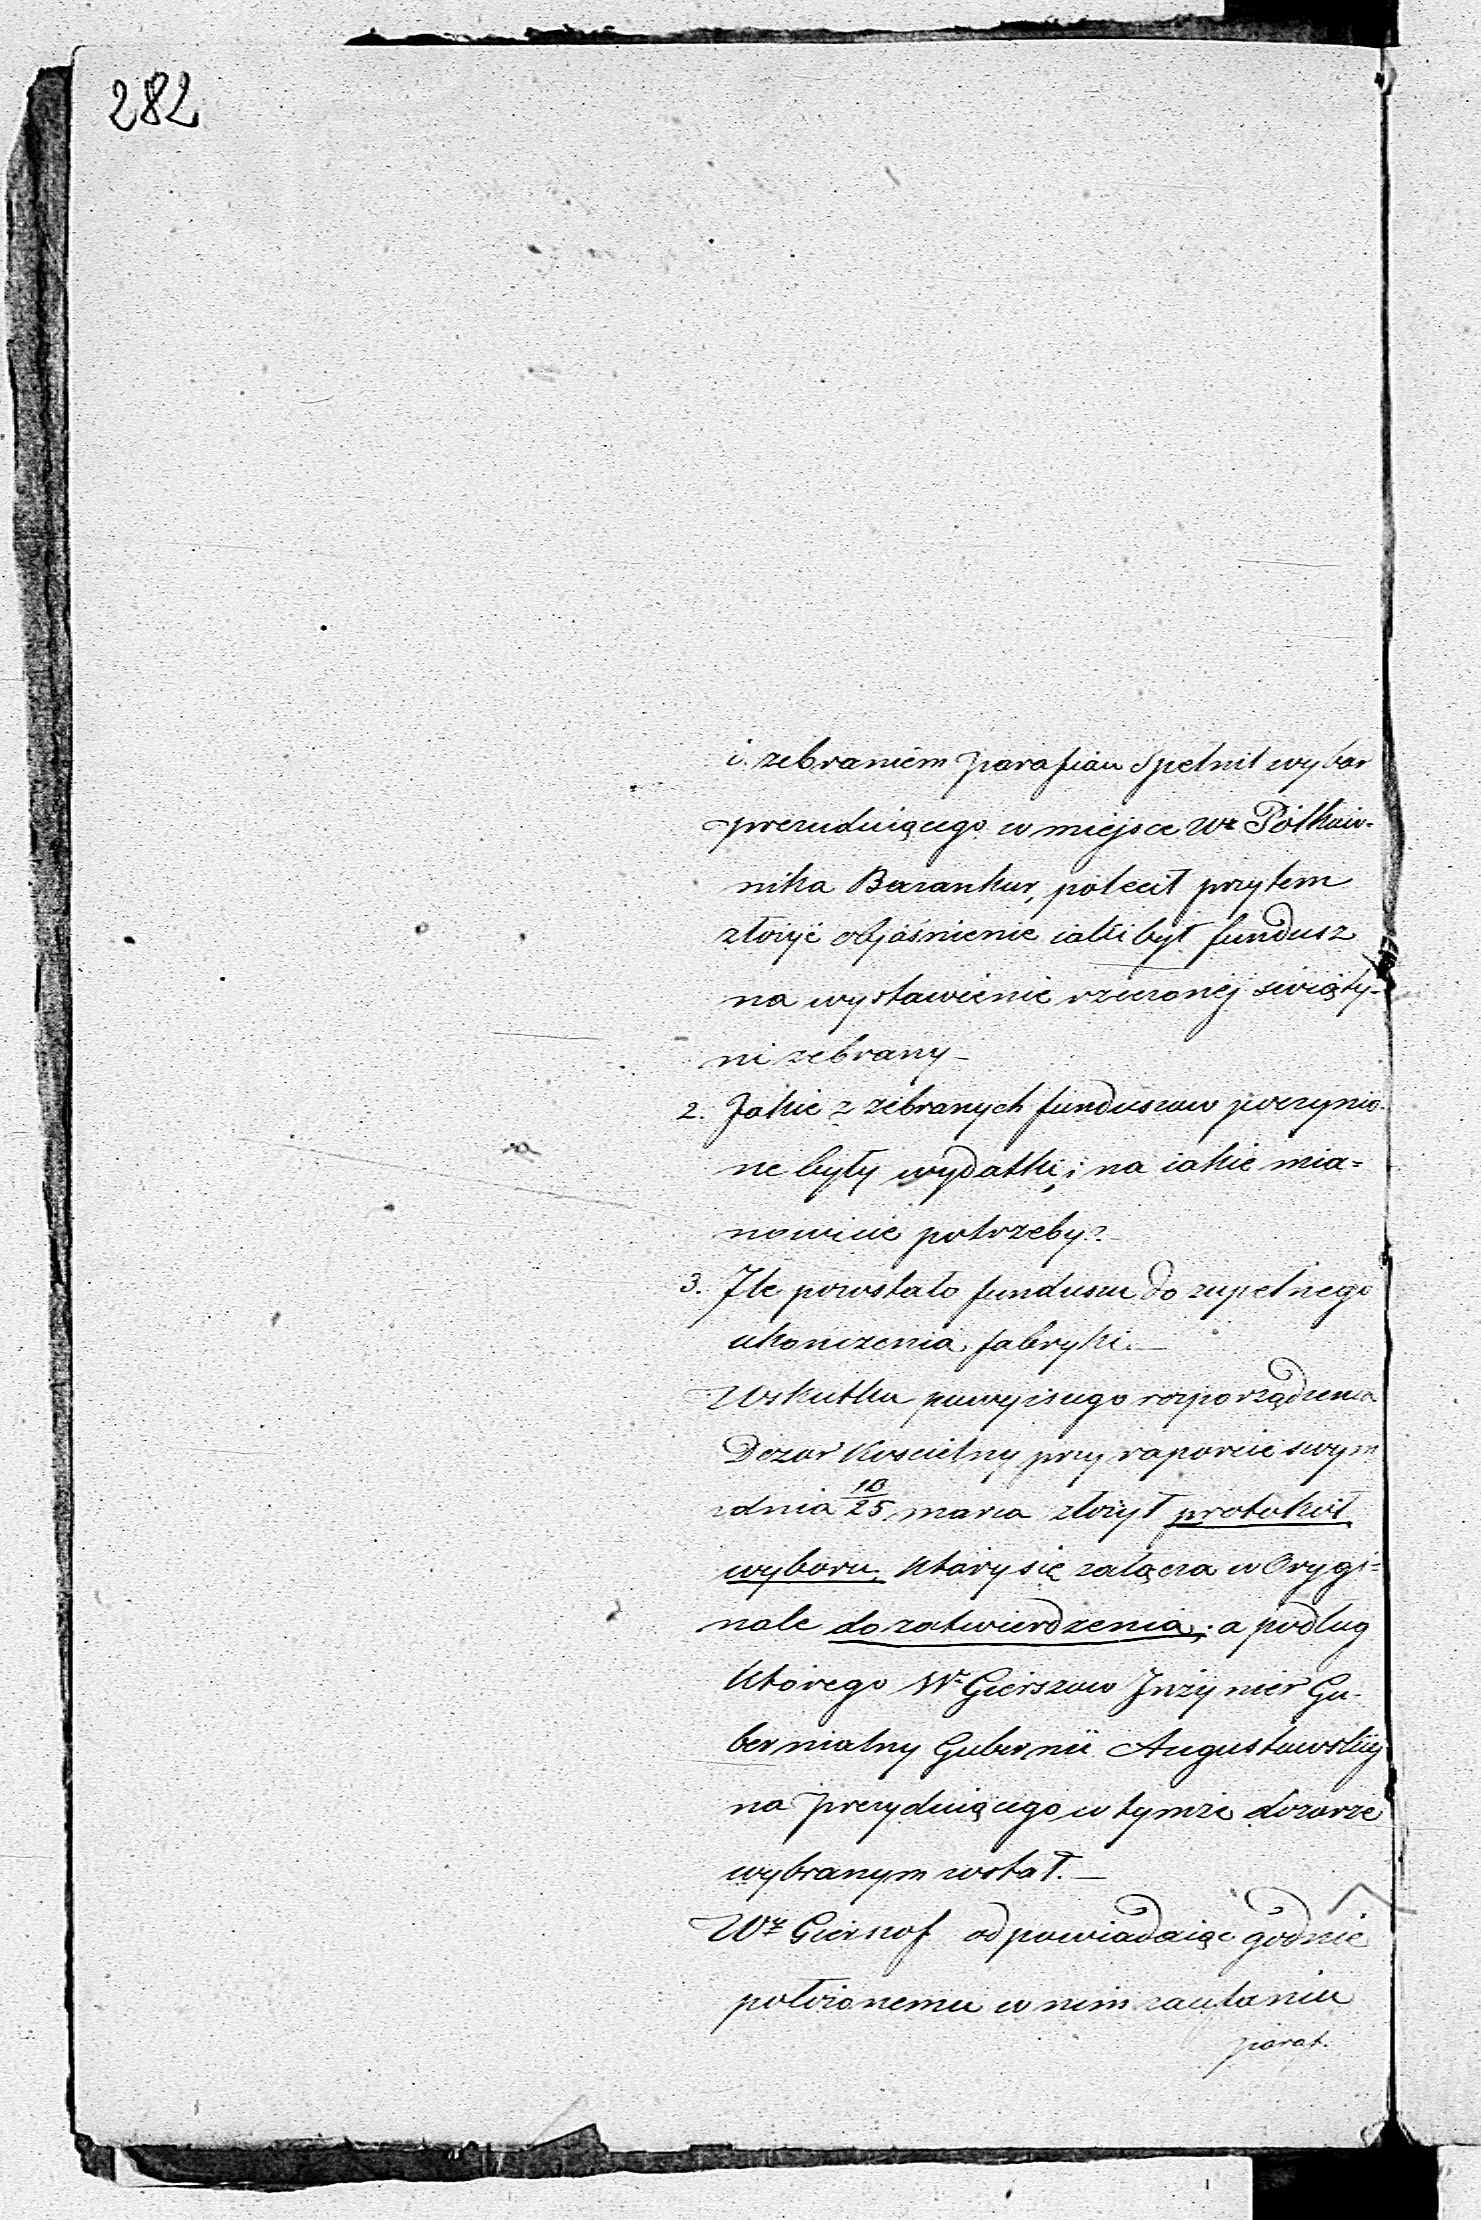 282
i zebraniem parafian spełnił wybor
prezuduiącego w miejsce Wº Półkow-
nika Barankur, polecił przytem
złożyć objaśnienie iaki był fundusz
na wystawienie rzeczonéj świąty-
ni zebrany –
2. Jakie z zebranych funduszow poczynio-
ne były wydatki, i na iakie mia=
nowicie potrzeby?
3. Ile powstało funduszu do zupełnego
ukonczenia fabryki. —
Wskutku powyższego rozporządzenia
Dozor Koscielny przy raporcie swym
z dnia 13/25 marca złożył protokół
wyboru, który się załącza w Orygi=
nale do zatwierdzenia; a podług
którego Wº Gierszow Inżynier Gu-
bernialny Gubernii Augustowskiéj
na prezyduiącego w tymże dozorze
wybranym został. —
Wº Gierszof odpowiadaiąc godnie
położonemu w nim zaufaniu
paraf.